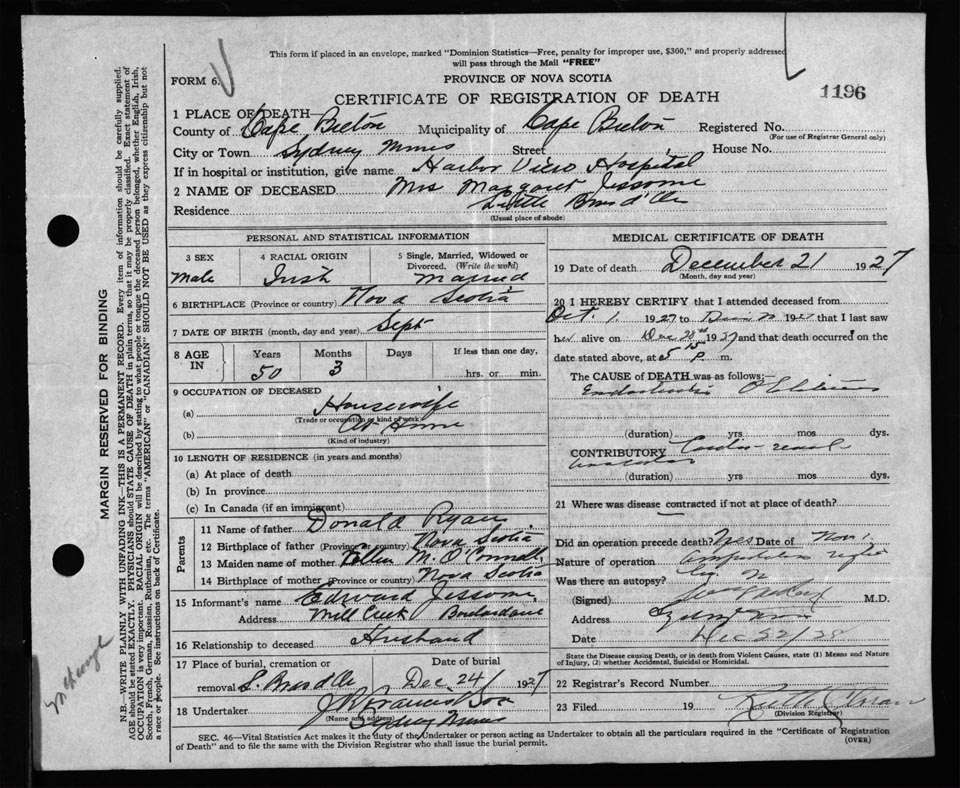 This form if placed in an envelope, marked "Dominion Statistics—Free, penalty for improper use, $300," and properly addressed
will pass through the Mail "FREE"
FORM 6.
PROVINCE OF NOVA SCOTIA
CERTIFICATE OF REGISTRATION OF DEATH
1196
1 PLACE OF DEATH—
County of Cape Breton Municipality of Cape Breton Registered No.
(For use of Registrar General only)
City or Town Sydney Mines Street House No.
If in hospital or institution, give name Harbor View Hospital
2 NAME OF DECEASED Mrs Margaret Jessome
Residence Little Bras d'Or
(Usual place of abode)
PERSONAL AND STATISTICAL INFORMATION
3 SEX 4 RACIAL ORIGIN 5 Single, Married, Widowed or
Divorced. (Write the word)
male Irish Married
6 BIRTHPLACE (Province or country) Nova Scotia
7 DATE OF BIRTH (month, day and year) Sept
8 AGE IN Years Months Days If less than one day,
50 3 hrs. or min.
9 OCCUPATION OF DECEASED
(a) Housewife
(Trade or occupation or kind of work)
(b) At Home
(Kind of industry)
10 LENGTH OF RESIDENCE (in years and months)
(a) At place of death
(b) In province
(c) In Canada (if an immigrant)
Parents
11 Name of father Donald Ryan
12 Birthplace of father (Province or country) Nova Scotia
13 Maiden name of mother M. O'Connell
14 Birthplace of mother (Province or country) Nova Scotia
15 Informant's name Edward Jessome
Address Mill Creek Boulardarie
16 Relationship to deceased Husband
17 Place of burial, cremation or Date of burial
removal L. Bras d'Or Dec 24/ 1927
18 Undertaker J R Francis
(Name and address)
Sydney Mines
MEDICAL CERTIFICATE OF DEATH
19 Date of death December 21 1927
(Month, day and year)
20 I HEREBY CERTIFY that I attended deceased from
Oct. 1 1927 to 1927 that I last saw
her alive on Dec and that death occurred on the
date stated above, at 5 15 p m.
The CAUSE of DEATH was as follows:—
(duration) yrs mos dys.
CONTRIBUTORY Cardio renal
(duration) yrs. mos. dys.
21 Where was disease contracted if not at place of death?
Did an operation precede death? Yes Date of Nov 1
Nature of operation
Was there an autopsy?
(Signed) M.D.
Address Sydney Mines
Date Dec 22/28
State the Disease causing Death, or in death from Violent Causes, state (1) Means and Nature
of Injury, (2) whether Accidental, Suicidal or Homicidal.
22 Registrar's Record Number
23 Filed 19
(Division Registrar)
SEC. 46—Vital Statistics Act makes it the duty of the Undertaker or person acting as Undertaker to obtain all the particulars required in the "Certificate of Registration
of Death" and to file the same with the Division Registrar who shall issue the burial permit.
(OVER)
MARGIN RESERVED FOR BINDING
N.B.—WRITE PLAINLY WITH UNFADING INK—THIS IS A PERMANENT RECORD. Every item of information should be carefully supplied.
AGE should be stated EXACTLY. PHYSICIANS should STATE CAUSE OF DEATH in plain terms, so that it may be properly classified. Exact statement of
OCCUPATION is very important. RACIAL ORIGIN will be described by stating to what people or tongue the deceased person belonged, whether English, Irish,
Scotch, French, German, Russian, Ruthenian, etc. The terms "AMERICAN" or "CANADIAN" SHOULD NOT BE USED as they express citizenship but not
a race or people. See instructions on back of Certificate.